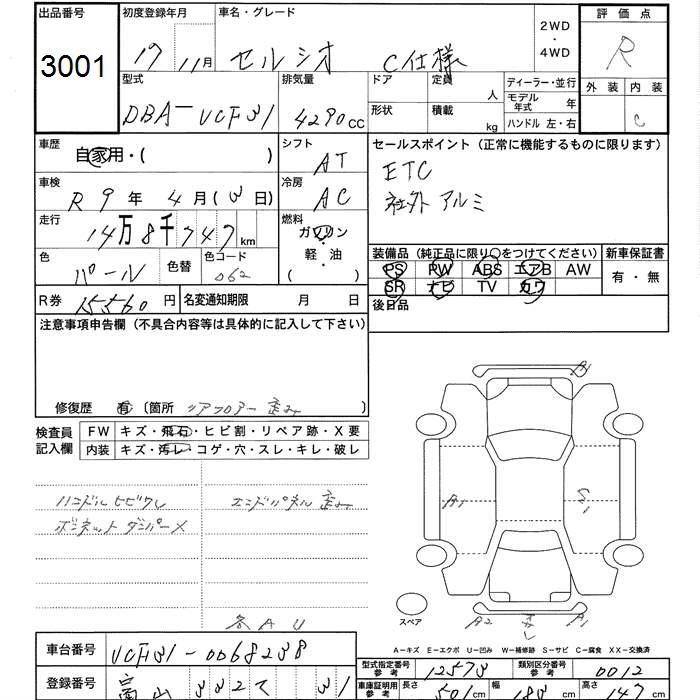 出品番号 初度登録年月 車名・グレード 2WD・4WD 評価点
3001 17 11月 セルシオ C仕様 R
型式 排気量 ドア 定員 人 ディーラー・並行 外装 内装
DBA-UCF31 4290cc 形状 積載 kg モデル年式 年 C
ハンドル 左・右
車歴 自家用・( ) シフト AT セールスポイント(正常に機能するものに限ります)
車検 R9年4月(3日) 冷房 AC ETC
社外アルミ
走行 14万8千747km 燃料 ガソリン 軽・油 ( )
色 パール 色替 色コード 062 装備品(純正品に限り○をつけてください) 新車保証書
PS PW ABS エアB AW 有・無
SR ナビ TV カワ
R券 15560円 名変通知期限 月 日 後日品
注意事項申告欄(不具合内容等は具体的に記入して下さい)
修復歴 有 〔箇所 リアフロアー歪み 〕
検査員記入欄 FW キズ・飛石・ヒビ割・リペア跡・X要
内装 キズ・汚レ・コゲ・穴・スレ・キレ・破レ
ハンドルヒビワレ エンドパネル歪み
ボンネットダンパーX
各AU
A1
A1
S1
A2
A1
スペア
A-キズ E-エクボ U-凹み W-補修跡 S-サビ C-腐食 XX-交換済
車台番号 UCF31-0068238 型式指定番号 参考 12573 類別区分番号 参考 0012
登録番号 富山 332 て 31 車庫証明用 参考 長さ 501cm 幅 183cm 高さ 147cm